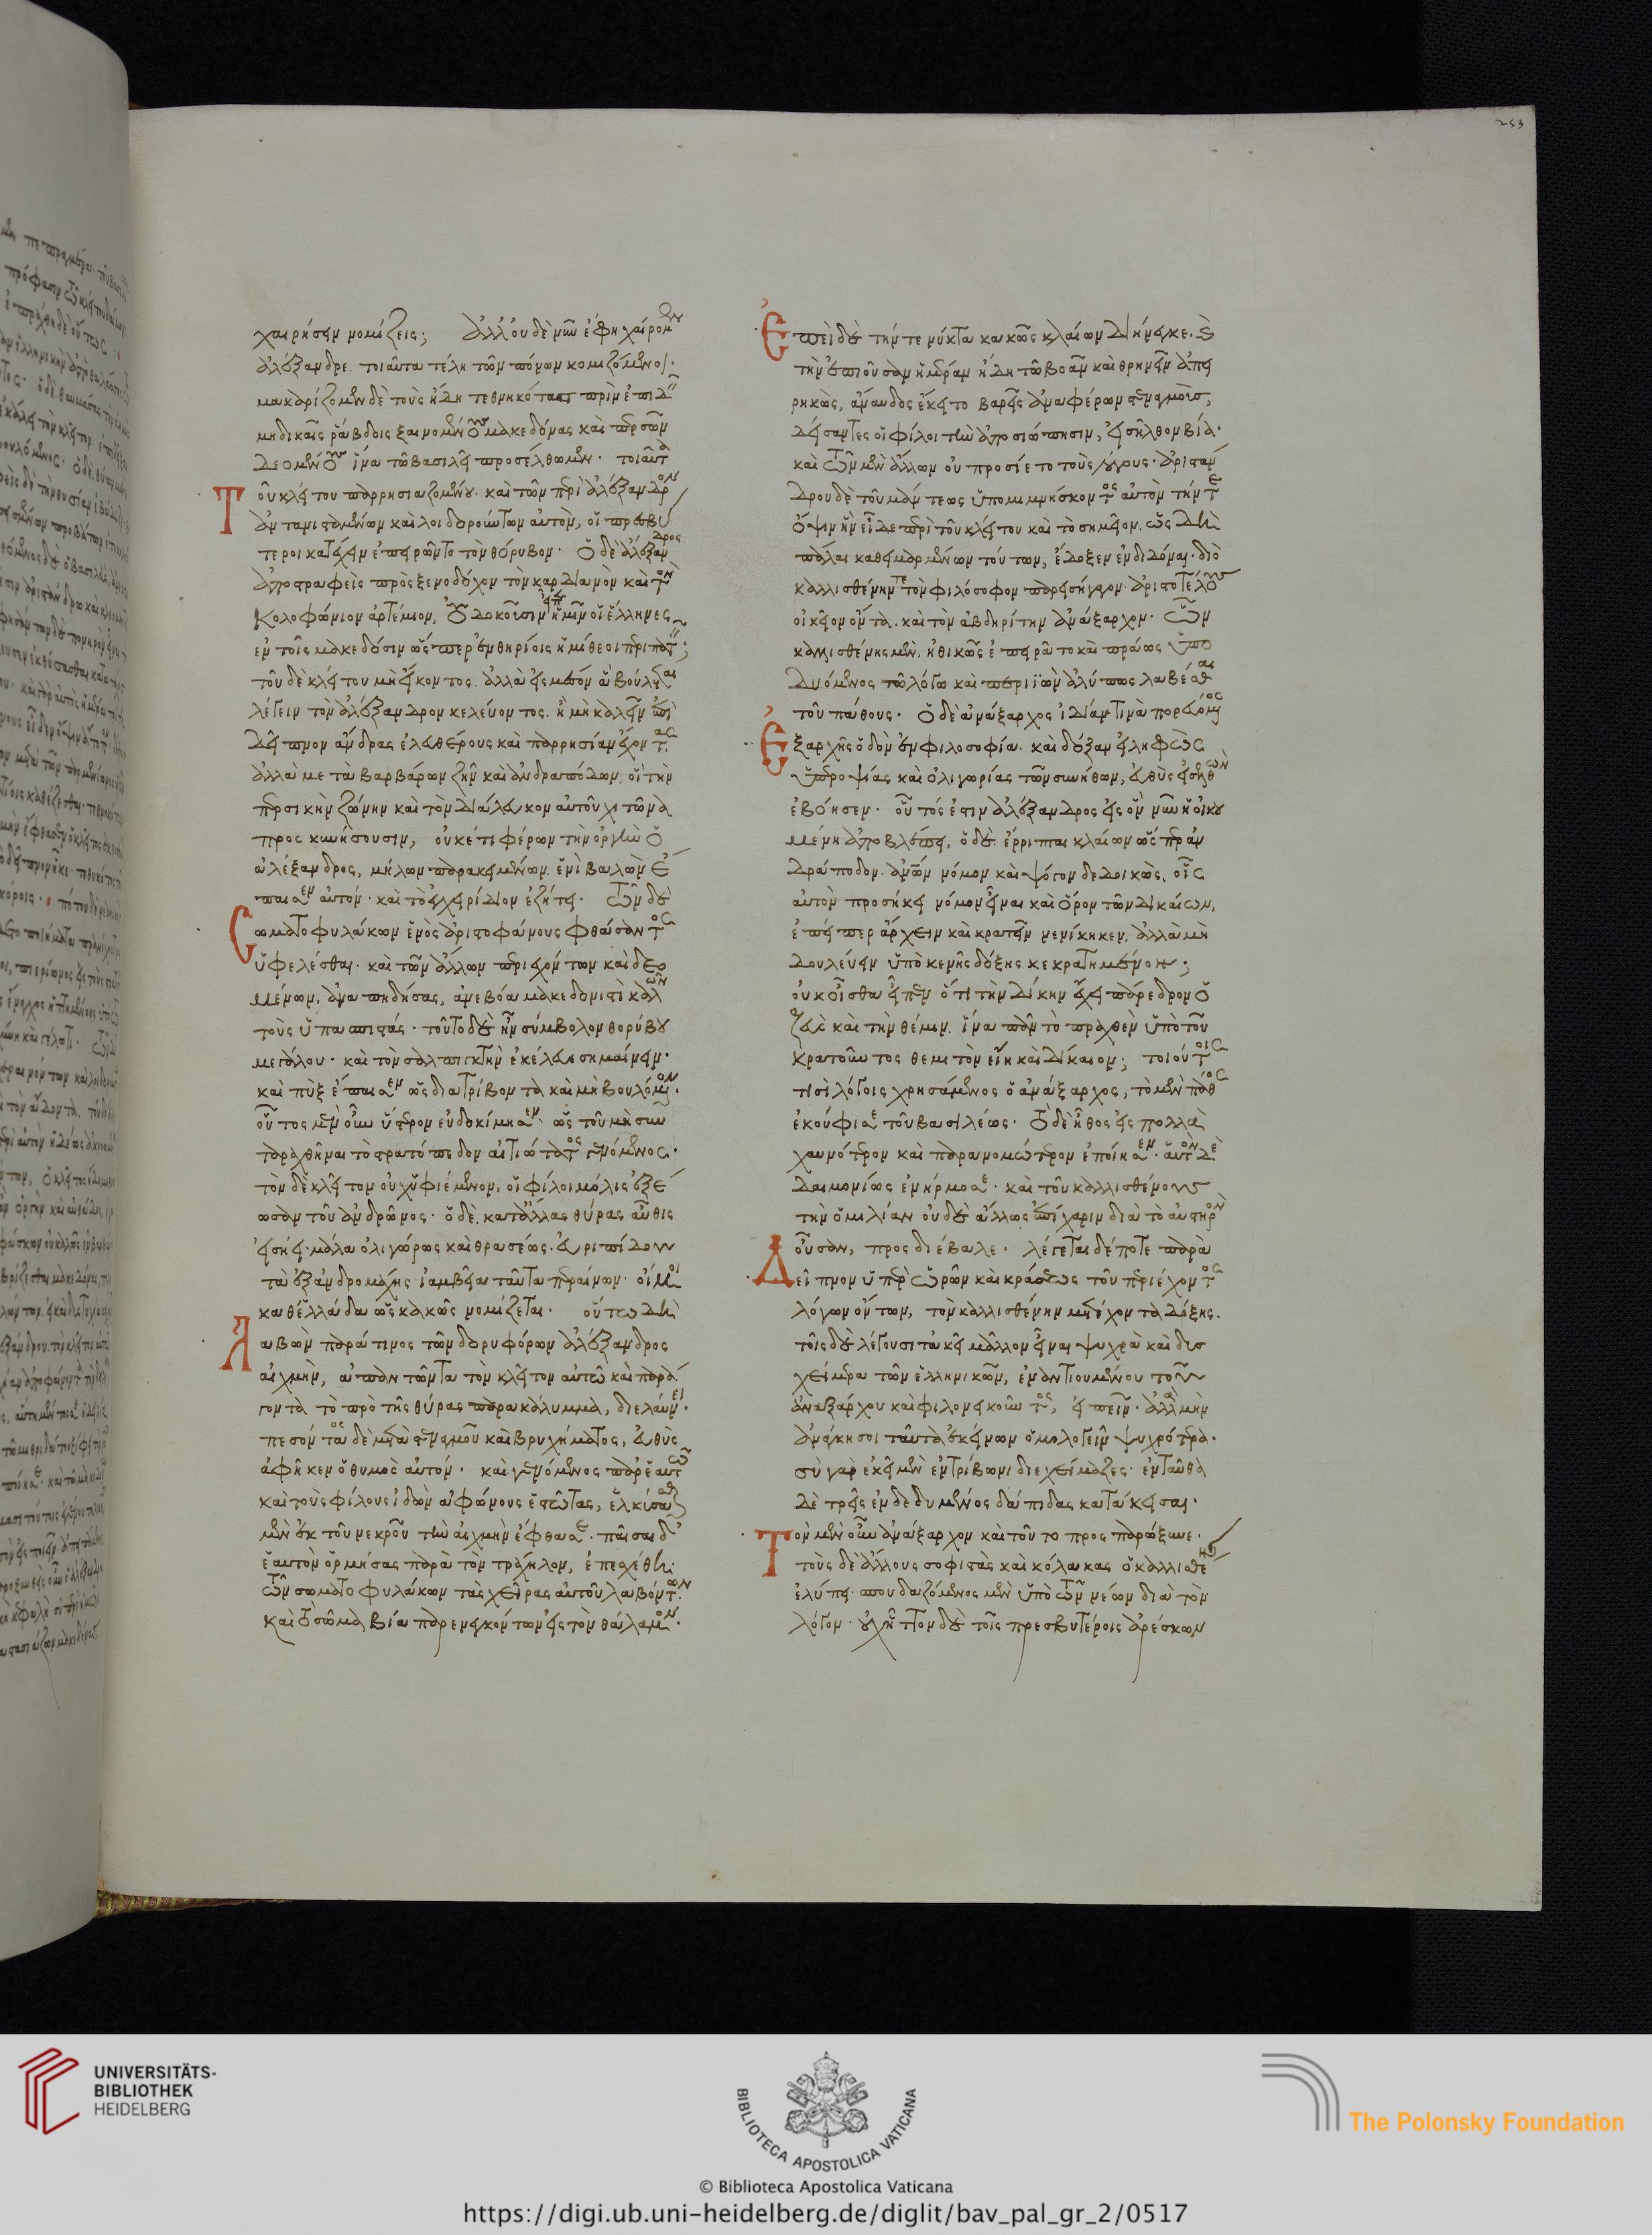 253
χαιρήσειν νομίζεις; ἀλλ' οὐδὲ νῦν ἔφη χαίρομεν
ἀλέξανδρε. τοιαῦτα τέλη τῶν πόνων κομιζόμενοι.
μακαρίζομεν δὲ τοὺς ἤδη τεθνηκότας πρὶν ἐπιδεῖν
μηδικαῖς ῥάβδοις ξαινομένους μακεδόνας καὶ περσῶν
δεομένους ἵνα τῷ βασιλεῖ προσέλθωμεν. τοιαῦτα
Τοῦ κλείτου παρρησιαζομένου. καὶ τῶν περὶ ἀλέξανδρον
ἀντανισταμένων καὶ λοιδορούντων αὐτὸν, οἱ πρεσβύ
τεροι κατέχειν ἐπειρῶντο τὸν θόρυβον. ὁ δὲ ἀλέξανδρος
ἀποστραφεὶς πρὸς ξενοδόχον τὸν καρδιανὸν καὶ τὸν
κολοφώνιον ἀρτέμιον, οὐ δοκοῦσιν εἶπεν ὑμῖν οἱ ἕλληνες
ἐν τοῖς μακεδόσιν ὥσπερ ἐν θηρίοις ἡμίθεοι περιπατεῖν;
τοῦ δὲ κλείτου μὴ εἴκοντος. ἀλλὰ εἰς μέσον ἃ βούλεται
λέγειν τὸν ἀλέξανδρον κελεύοντος. ἢ μὴ καλεῖν ἐπὶ
δεῖπνον ἄνδρας ἐλευθέρους καὶ παρρησίαν ἔχοντας.
ἀλλὰ μετὰ βαρβάρων ζῆν καὶ ἀνδραπόδων. οἳ τὴν
περσικὴν ζώνην καὶ τὸν διάλευκον αὐτοῦ χιτῶνα
προσκυνήσουσιν, οὐκέτι φέρων τὴν ὀργὴν ὁ
ἀλέξανδρος, μήλων παρακειμένων. ἑνὶ βαλὼν ἔ
παισεν αὐτόν. καὶ τὸ ἐγχειρίδιον ἐζήτει. τῶν δὲ
Σωματοφυλάκων ἑνὸς ἀριστοφάνους φθάσαντος
ὑφελέσθαι. καὶ τῶν ἄλλων περιεχόντων καὶ δεο
μένων, ἀναπηδήσας, ἀνεβόα μακεδονιστὶ καλῶν
τοὺς ὑπασπιστάς. τοῦτο δὲ ἦν σύμβολον θορύβου
μεγάλου. καὶ τὸν σαλπιγκτὴν ἐκέλευσε σημαίνειν.
καὶ πὺξ ἔπαισεν ὡς διατρίβοντα καὶ μὴ βουλόμενον.
οὗτος μὲν οὖν ὕστερον εὐδοκίμησεν. ὡς τοῦ μὴ συν
ταραχθῆναι τὸ στρατόπεδον αἰτιώτατος γενόμενος.
τὸν δὲ κλεῖτον οὐχ ὑφιέμενον, οἱ φίλοι μόλις ἐξέ
ωσαν τοῦ ἀνδρῶνος. ὁ δὲ κατ' ἄλλας θύρας αὖθις
εἰσῄει. μάλα ὀλιγώρως καὶ θρασέως. εὐριπίδου
τὰ ἐξ ἀνδρομάχης ἰαμβεῖα ταῦτα περαίνων. οἴμοι
καθ' ἑλλάδα ὡς κακῶς νομίζεται. οὕτω δὴ
Λαβὼν παρά τινος τῶν δορυφόρων ἀλέξανδρος
αἰχμὴν, ἀπαντῶντα τὸν κλεῖτον αὐτῷ καὶ παρά
γοντα τὸ πρὸ τῆς θύρας παρακάλυμμα, διελαύνει.
πεσόντος δὲ μετὰ στεναγμοῦ καὶ βρυχήματος, εὐθὺς
ἀφῆκεν ὁ θυμὸς αὐτόν. καὶ γενόμενος παρ' ἑαυτῷ
καὶ τοὺς φίλους ἰδὼν ἀφώνους ἑστῶτας, ἑλκύσασθαι
μὲν ἐκ τοῦ νεκροῦ τὴν αἰχμὴν ἔφθασε. παῖσαι δ'
ἑαυτὸν ὁρμήσας παρὰ τὸν τράχηλον, ἐπεσχέθη.
τῶν σωματοφυλάκων τὰς χεῖρας αὐτοῦ λαβόντων.
καὶ τὸ σῶμα βίᾳ παρενεγκόντων εἰς τὸν θάλαμον.
Ἐπεὶ δὲ τήν τε νύκτα κακῶς κλαίων διήνεγκε. καὶ
τὴν ἐπιοῦσαν ἡμέραν ἤδη τῷ βοᾶν καὶ θρηνεῖν ἀπει
ρηκὼς, ἄναυδος ἔκειτο βαρεῖς ἀναφέρων στεναγμοὺς,
δείσαντες οἱ φίλοι τὴν ἀποσιώπησιν, εἰσῆλθον βίᾳ.
καὶ τῶν μὲν ἄλλων οὐ προσίετο τοὺς λόγους. ἀριστάν
δρου δὲ τοῦ μάντεως ὑπομιμνήσκοντος αὐτὸν τήν τε
ὄψιν ἣν εἶδε περὶ τοῦ κλείτου καὶ τὸ σημεῖον. ὡς δὴ
πάλαι καθειμαρμένων τούτων, ἔδοξεν ἐνδιδόναι. διὸ
καλλισθένην τε τὸν φιλόσοφον παρεισήγαγον ἀριστοτέλους
οἰκεῖον ὄντα. καὶ τὸν ἀβδηρίτην ἀνάξαρχον. ὧν
καλλισθένης μὲν, ἠθικῶς ἐπειρᾶτο καὶ πράως ὑπο
δυόμενος τῷ λόγῳ καὶ περιϊὼν ἀλύπως λαβέσθαι
τοῦ πάθους. ὁ δὲ ἀνάξαρχος ἰδίαν τινὰ πορευόμενος
Ἐξαρχῆς ὁδὸν ἐν φιλοσοφίᾳ. καὶ δόξαν εἰληφὼς
ὑπεροψίας καὶ ὀλιγωρίας τῶν συνήθων, εὐθὺς εἰσελθὼν
ἐβόησεν. οὗτός ἐστιν ἀλέξανδρος εἰς ὃν νῦν ἡ οἰκου
μένη ἀποβλέπει, ὁ δὲ ἔρριπται κλαίων ὥσπερ ἀν
δράποδον. ἀνθρώπων νόμον καὶ ψόγον δεδοικὼς, οἷς
αὐτὸν προσήκει νόμον εἶναι καὶ ὅρον τῶν δικαίων,
ἐπείπερ ἄρχειν καὶ κρατεῖν νενίκηκεν, ἀλλὰ μὴ
δουλεύειν ὑπὸ κενῆς δόξης κεκρατημένον;
οὐκ οἶσθα εἶπεν ὅτι τὴν δίκην ἔχει πάρεδρον ὁ
ζεὺς καὶ τὴν θέμιν. ἵνα πᾶν τὸ πραχθὲν ὑπὸ τοῦ
κρατοῦντος θεμιτὸν εἴη καὶ δίκαιον; τοιούτοις
τισὶ λόγοις χρησάμενος ὁ ἀνάξαρχος, τὸ μὲν πάθος
ἐκούφισε τοῦ βασιλέως. τὸ δὲ ἦθος εἰς πολλὰ
χαυνότερον καὶ παρανομώτερον ἐποίησεν. αὑτὸν δὲ
δαιμονίως ἐνήρμοσε. καὶ τοῦ καλλισθένους
τὴν ὁμιλίαν οὐδὲ ἄλλως ἐπίχαριν διὰ τὸ αὐστηρὸν
οὖσαν, προσδιέβαλε. λέγεται δέ ποτε παρὰ
Δεῖπνον ὑπὲρ ὡρῶν καὶ κράσεως τοῦ περιέχοντος
λόγων ὄντων, τὸν καλλισθένην μετέχοντα δόξης.
τοῖς δὲ λέγουσι τἀκεῖ μᾶλλον εἶναι ψυχρὰ καὶ δυσ
χείμερα τῶν ἑλληνικῶν, ἐναντιουμένου τοῦ
ἀναξάρχου καὶ φιλονεικοῦντος, εἰπεῖν. ἀλλὰ μὴν
ἀνάγκη σοι ταῦτα ἐκείνων ὁμολογεῖν ψυχρότερα.
σὺ γὰρ ἐκεῖ μὲν ἐν τρίβωνι διεχείμαζες. ἐνταῦθα
δὲ τρεῖς ἐνδεδυμένος δάπιδας κατάκεισαι.
Τὸν μὲν οὖν ἀνάξαρχον καὶ τοῦτο προσπαρώξυνε.
τοὺς δὲ ἄλλους σοφιστὰς καὶ κόλακας ὁ καλλισθένης
ἐλύπει. σπουδαζόμενος μὲν ὑπὸ τῶν νέων διὰ τὸν
λόγον. οὐχ ἧττον δὲ τοῖς πρεσβυτέροις ἀρέσκων
UNIVERSITÄTS-
BIBLIOTHEK
HEIDELBERG
BIBLIOTECA APOSTOLICA VATICANA
The Polonsky Foundation
© Biblioteca Apostolica Vaticana
https://digi.ub.uni-heidelberg.de/diglit/bav_pal_gr_2/0517